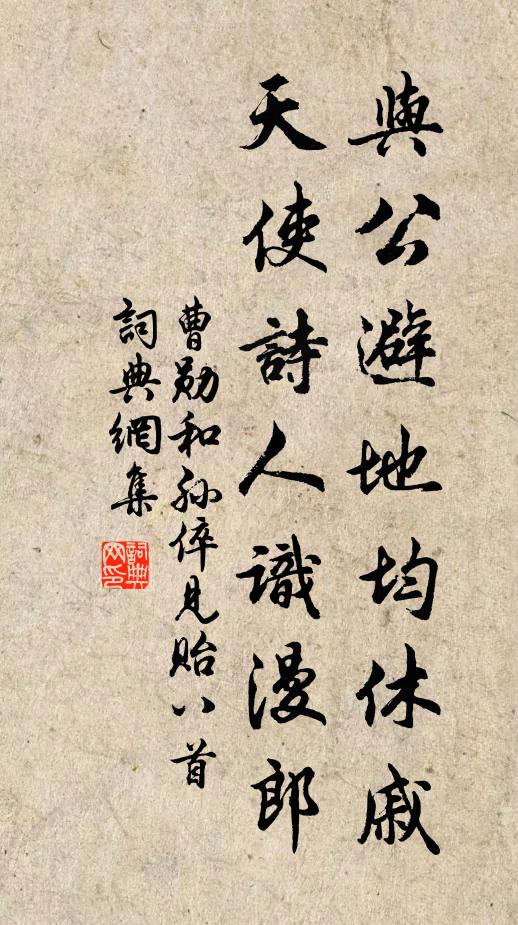 與公避地均休戚
天使詩人識漫郎
曹勛和孙倅見貽八首
詞典網集
詞典網印